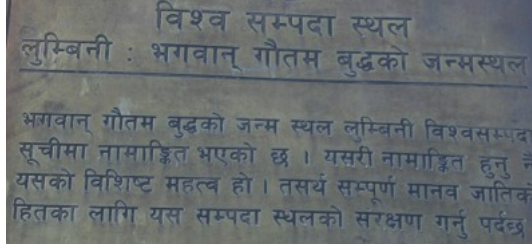 विश्व सम्पदा स्थल
लुम्बिनी : भगवान् गौतम बुद्धको जन्मस्थल
भगवान् गौतम बुद्धको जन्म स्थल लुम्बिनी विश्वसम्पदा
सूचीमा नामाङ्कित भएको छ । यसरी नामाङ्कित हुनु नै
यसको विशिष्ट महत्व हो । तसर्थ सम्पूर्ण मानव जातिक
हितका लागि यस सम्पदा स्थलको संरक्षण गर्नु पर्दछ